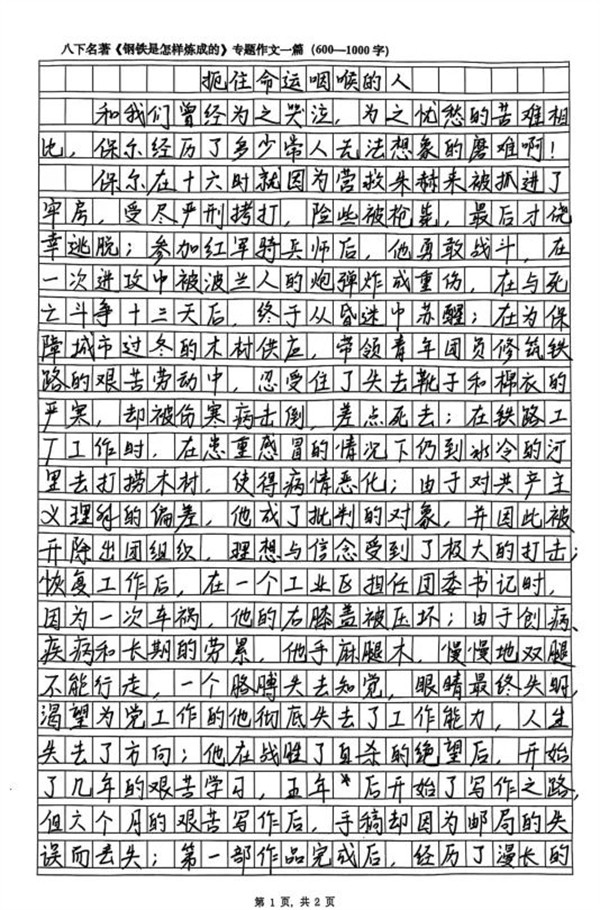 八下名著《钢铁是怎样炼成的》专题作文一篇（600—1000字）
扼住命运咽喉的人
和我们曾经为之哭泣，为之忧愁的苦难相
比，保尔经历了多少常人无法想象的磨难啊！
保尔在十六时就因为营救朱赫来被抓进了
牢房，受尽严刑拷打，险些被枪毙，最后才侥
幸逃脱；参加红军骑兵师后，他勇敢战斗，在
一次进攻中被波兰人的炮弹炸成重伤，在与死
亡斗争十三天后，终于从昏迷中苏醒；在为保
障城市过冬的木材供应，带领青年团员修筑铁
路的艰苦劳动中，忍受住了失去靴子和棉衣的
严寒，却被伤寒病击倒，差点死去；在铁路工
厂工作时，在患重感冒的情况下仍到冰冷的河
里去打捞木材，使得病情恶化；由于对共产主
义理解的偏差，他成了批判的对象，并因此被
开除出团组织，理想与信念受到了极大的打击；
恢复工作后，在一个工业区担任团委书记时，
因为一次车祸，他的右膝盖被压坏；由于创病、
疾病和长期的劳累，他手麻腿木，慢慢地双腿
不能行走，一个胳膊失去知觉，眼睛最终失明，
渴望为党工作的他彻底失去了工作能力，人生
失去了方向；他在战胜了自杀的绝望后，开始
了几年的艰苦学习，五年*后开始了写作之路，
但六个月的艰苦写作后，手稿却因为邮局的失
误而丢失；第一部作品完成后，经历了漫长的
第 1 页，共 2 页